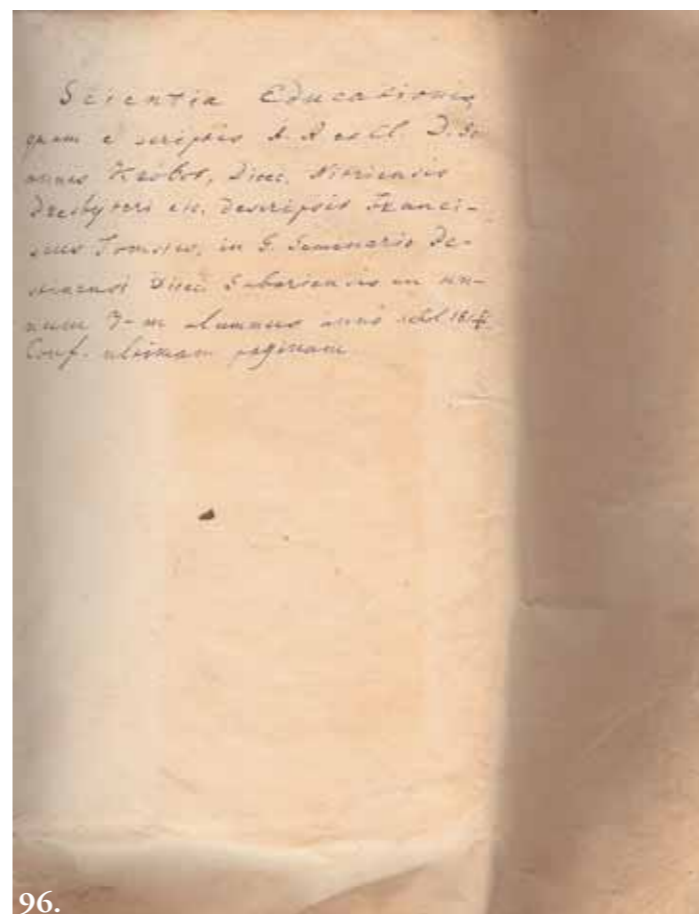 Scientia Educationis
quam e scriptis A. R. et Cl. D. Jo-
annes Dioec. Nitriensis
Presbyteri etc. descripsit Franci-
scus in G. Seminario
Dioec. Sabariensis in an-
num 3-m alumnus anno
Conf. ultimam paginam
96.